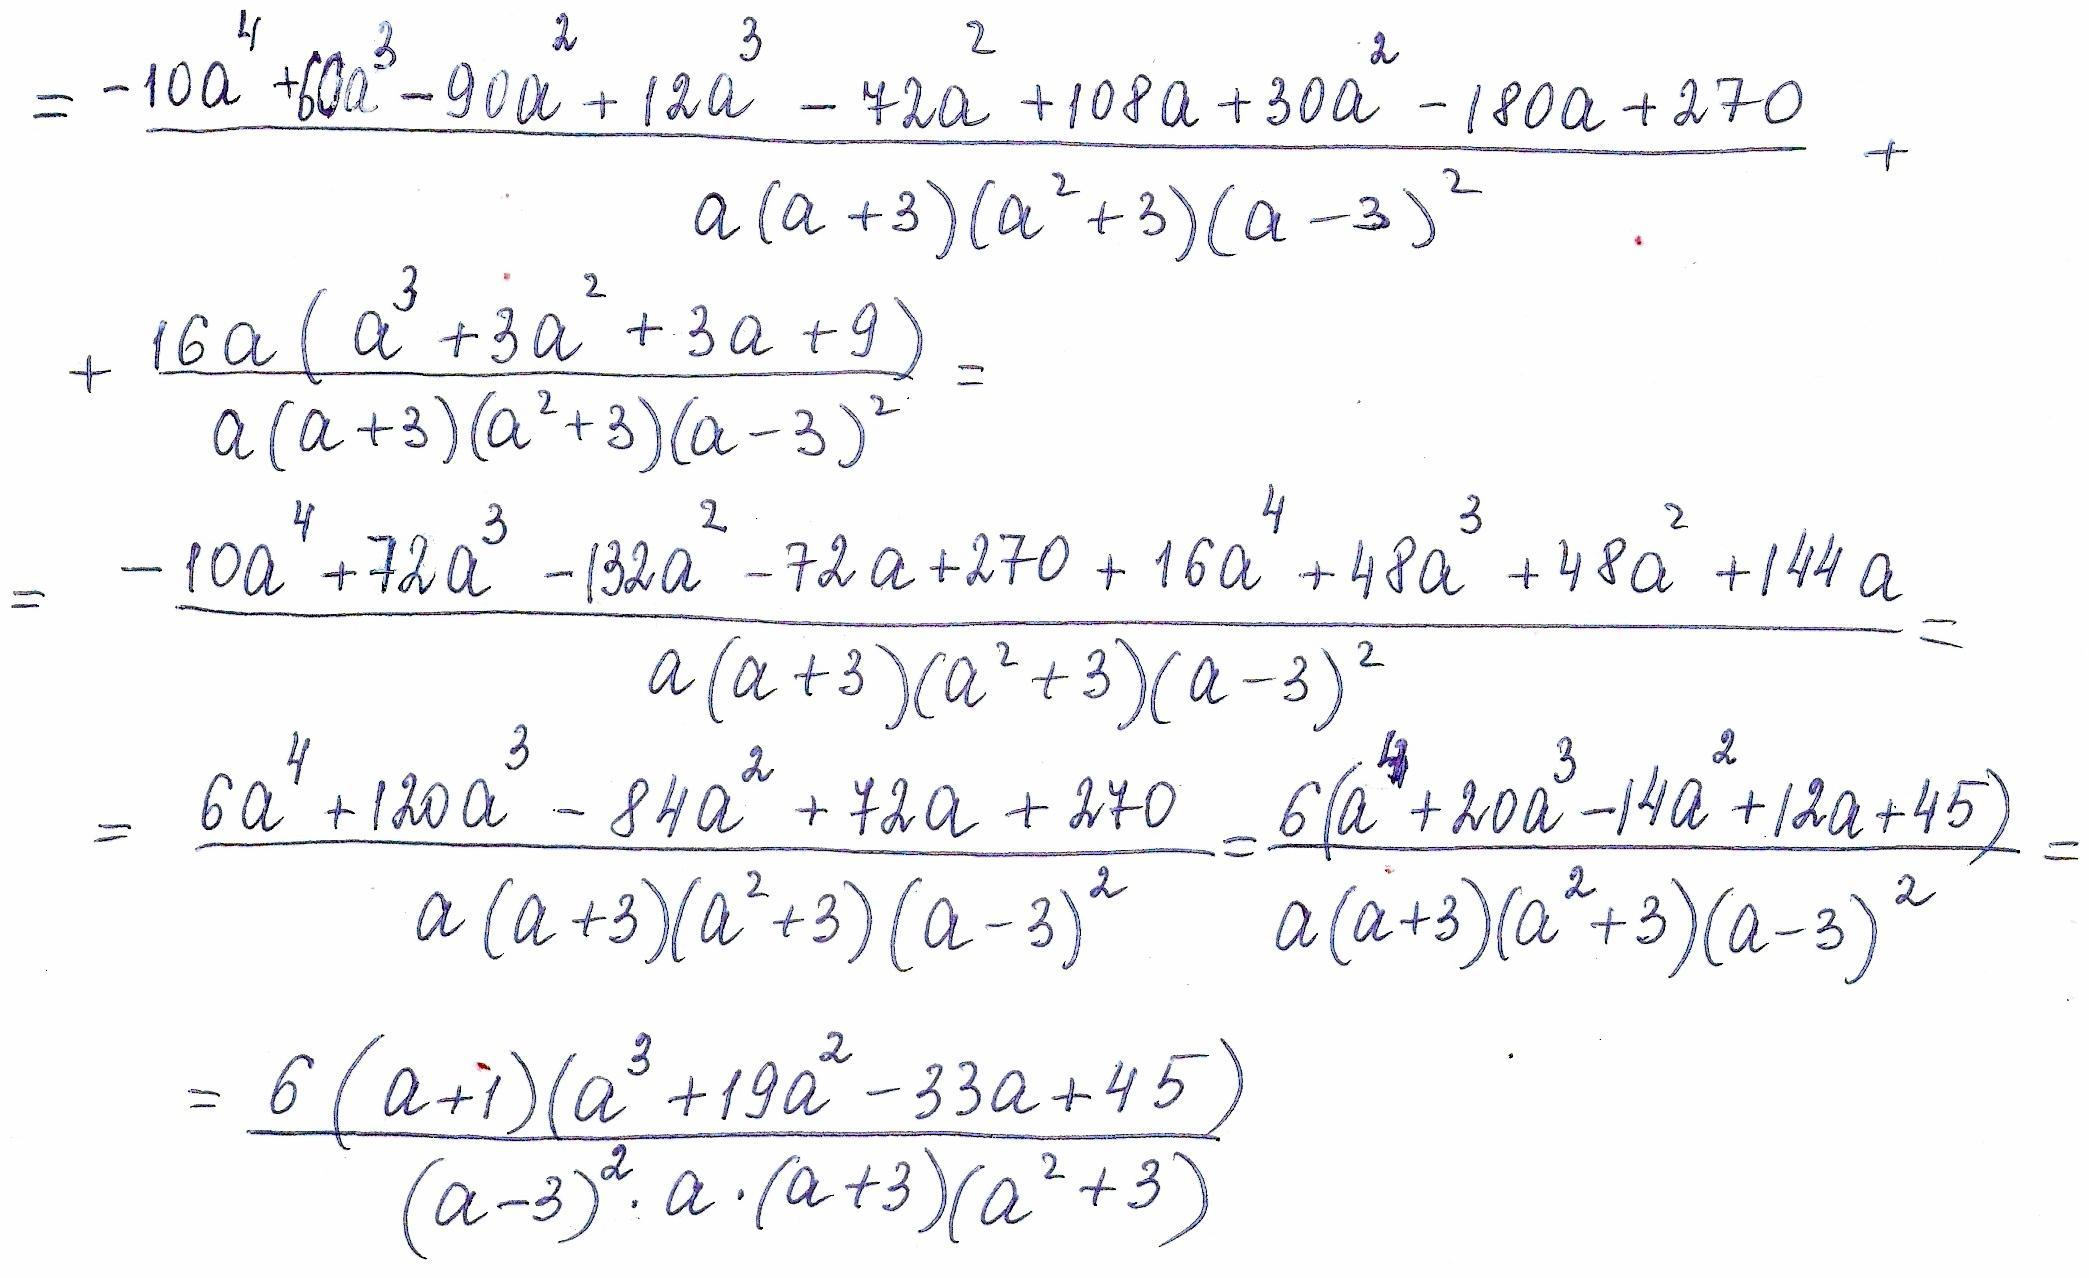 = -10a⁴ + 60a³ - 90a² + 12a³ - 72a² + 108a + 30a² - 180a + 270 +
a(a+3)(a²+3)(a-3)²
+ 16a(a³ + 3a² + 3a + 9) =
a(a+3)(a²+3)(a-3)²
= -10a⁴ + 72a³ - 132a² - 72a + 270 + 16a⁴ + 48a³ + 48a² + 144a =
a(a+3)(a²+3)(a-3)²
= 6a⁴ + 120a³ - 84a² + 72a + 270 = 6(a⁴ + 20a³ - 14a² + 12a + 45) =
a(a+3)(a²+3)(a-3)² a(a+3)(a²+3)(a-3)²
= 6(a+1)(a³ + 19a² - 33a + 45)
(a-3)² · a · (a+3)(a²+3)